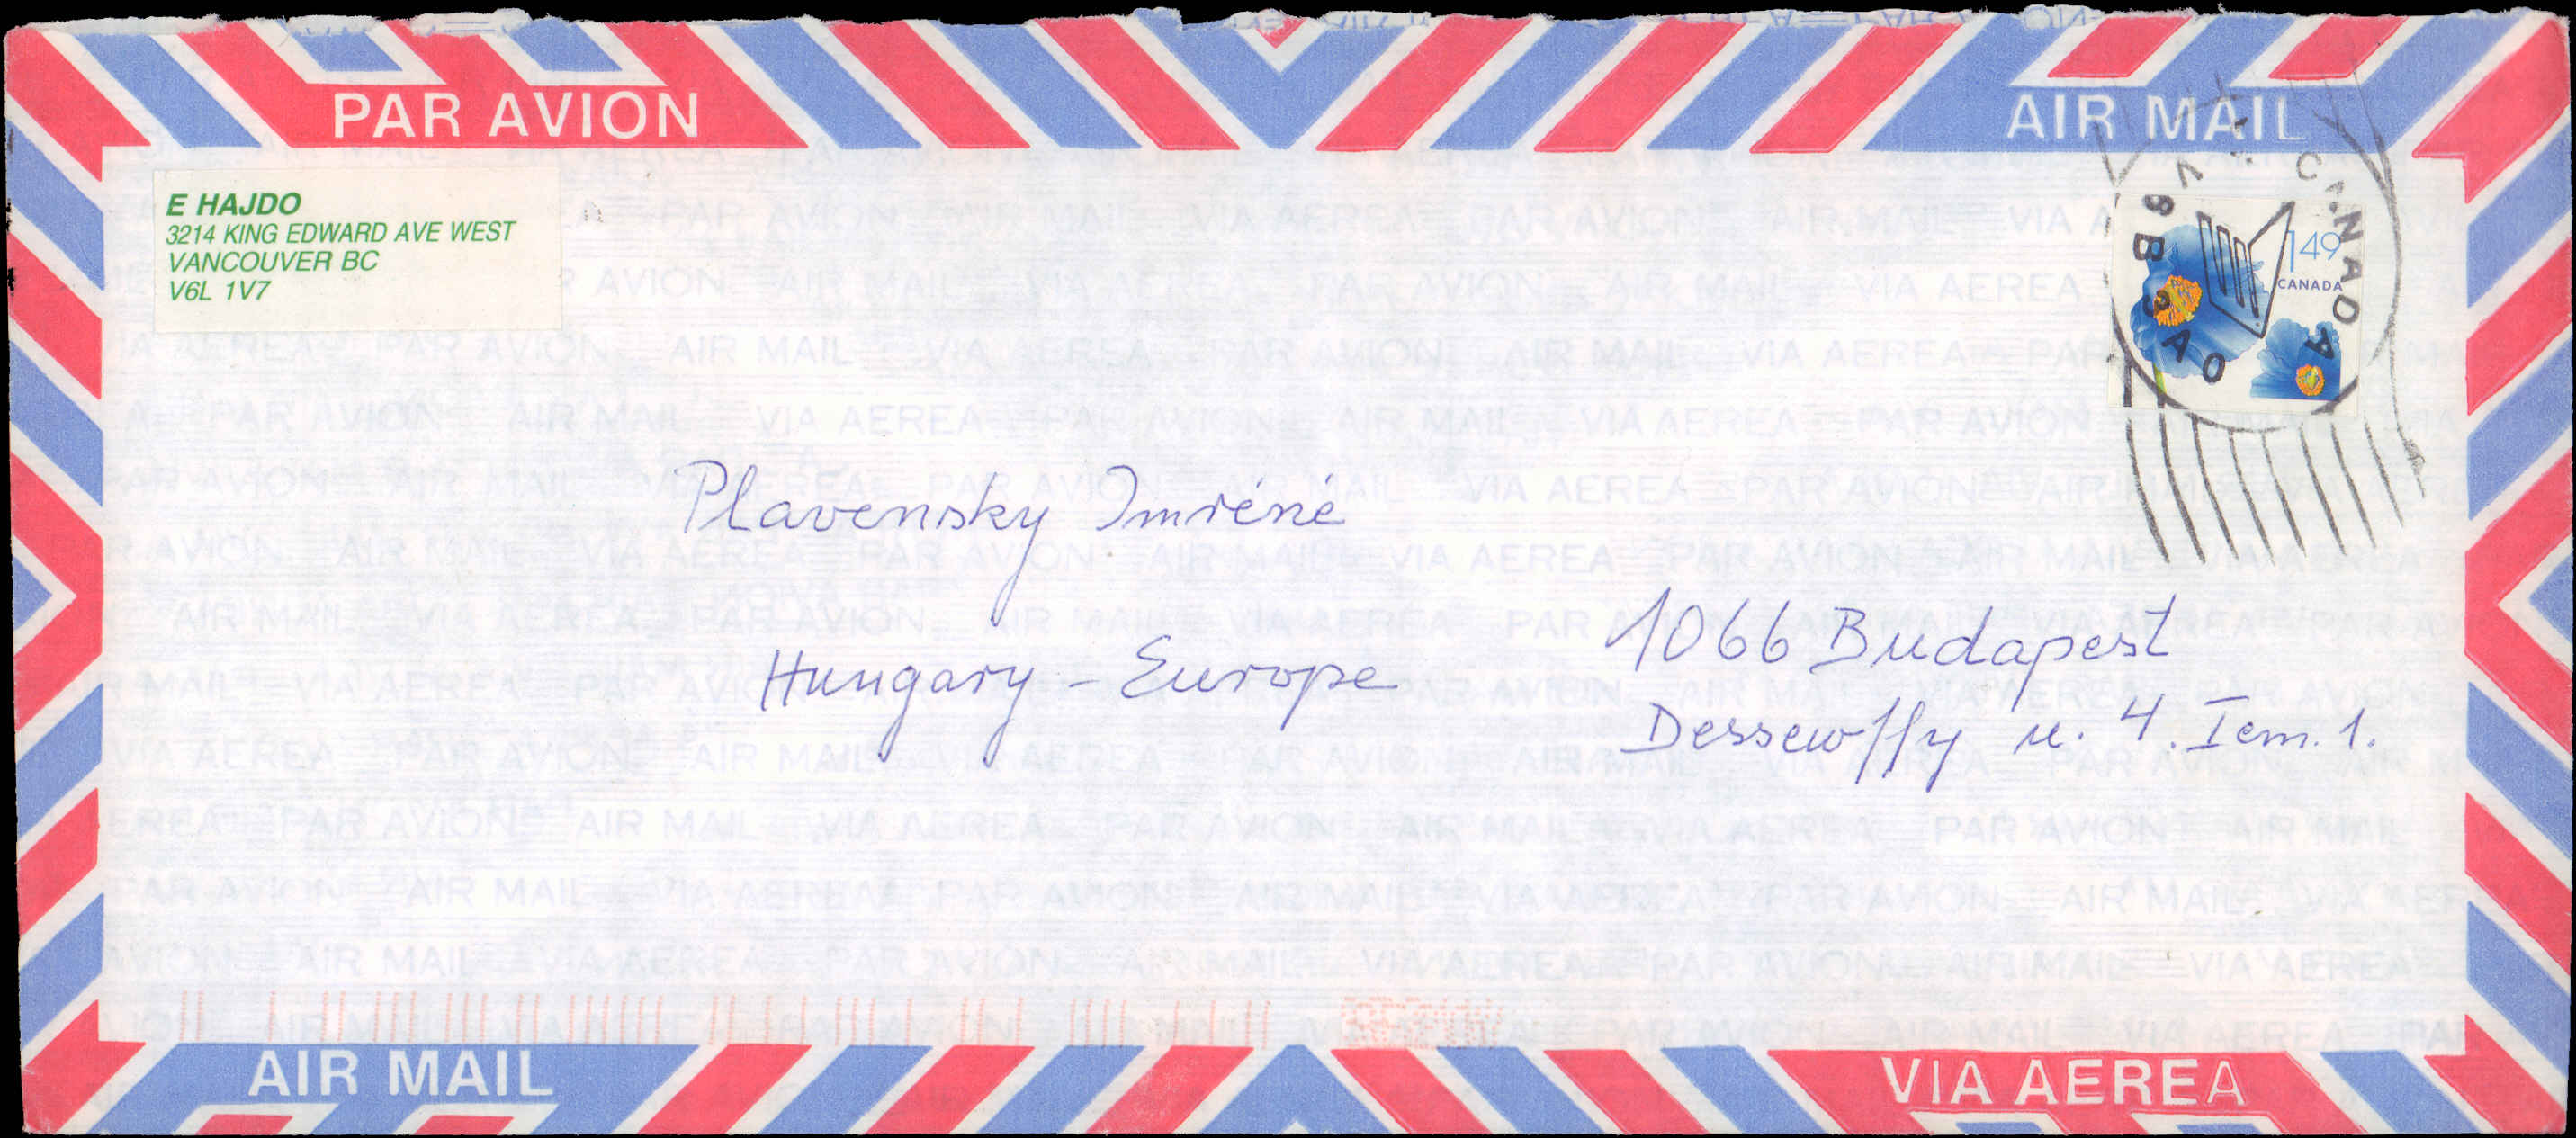 PAR AVION
AIR MAIL
E HAJDO
3214 KING EDWARD AVE WEST
VANCOUVER BC
V6L 1V7
CANADA
V8B 3A0
1.49
CANADA
Plavensky Imréné
Hungary - Europe
1066 Budapest
Dessewffy u. 4. I em. 1.
AIR MAIL
VIA AEREA